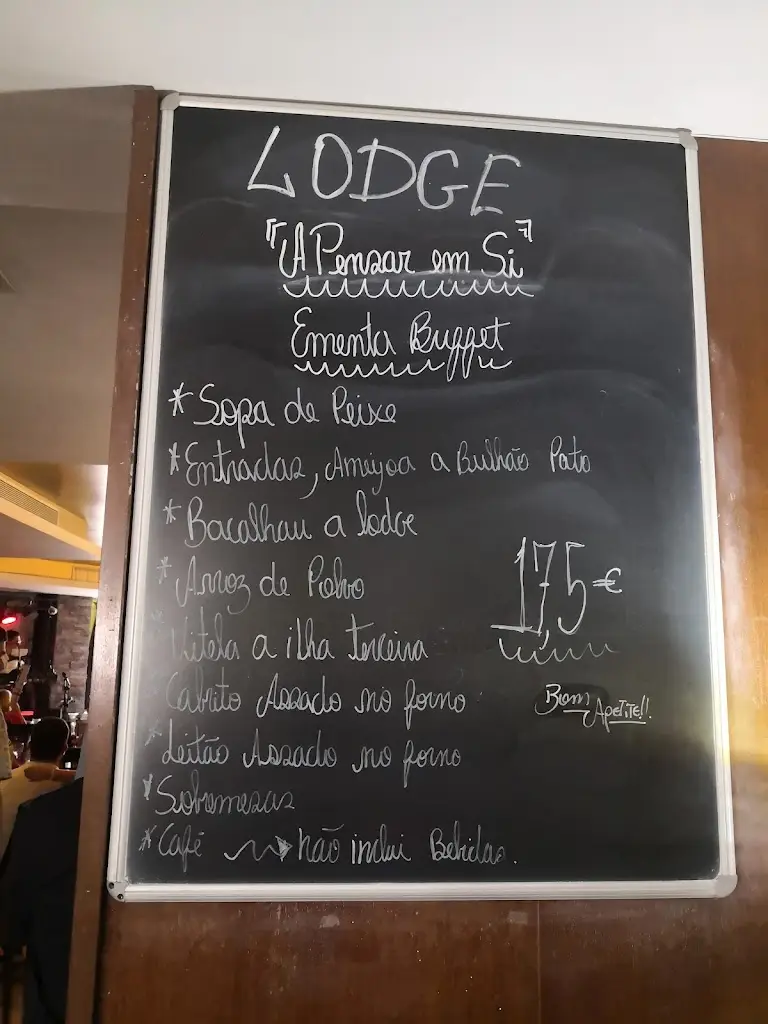 LODGE
"A Pensar em Si"
Ementa Buffet
* Sopa de Peixe
* Entradas, Amijoa a Bulhão Pato
* Bacalhau a lodge
* Arroz de Polvo
* Vitela a ilha terceira
* Cabrito Assado no forno
* Leitão Assado no forno
* Sobremesas
* Café → não inclui Bebidas.
17,5 €
Bom Apetite!!